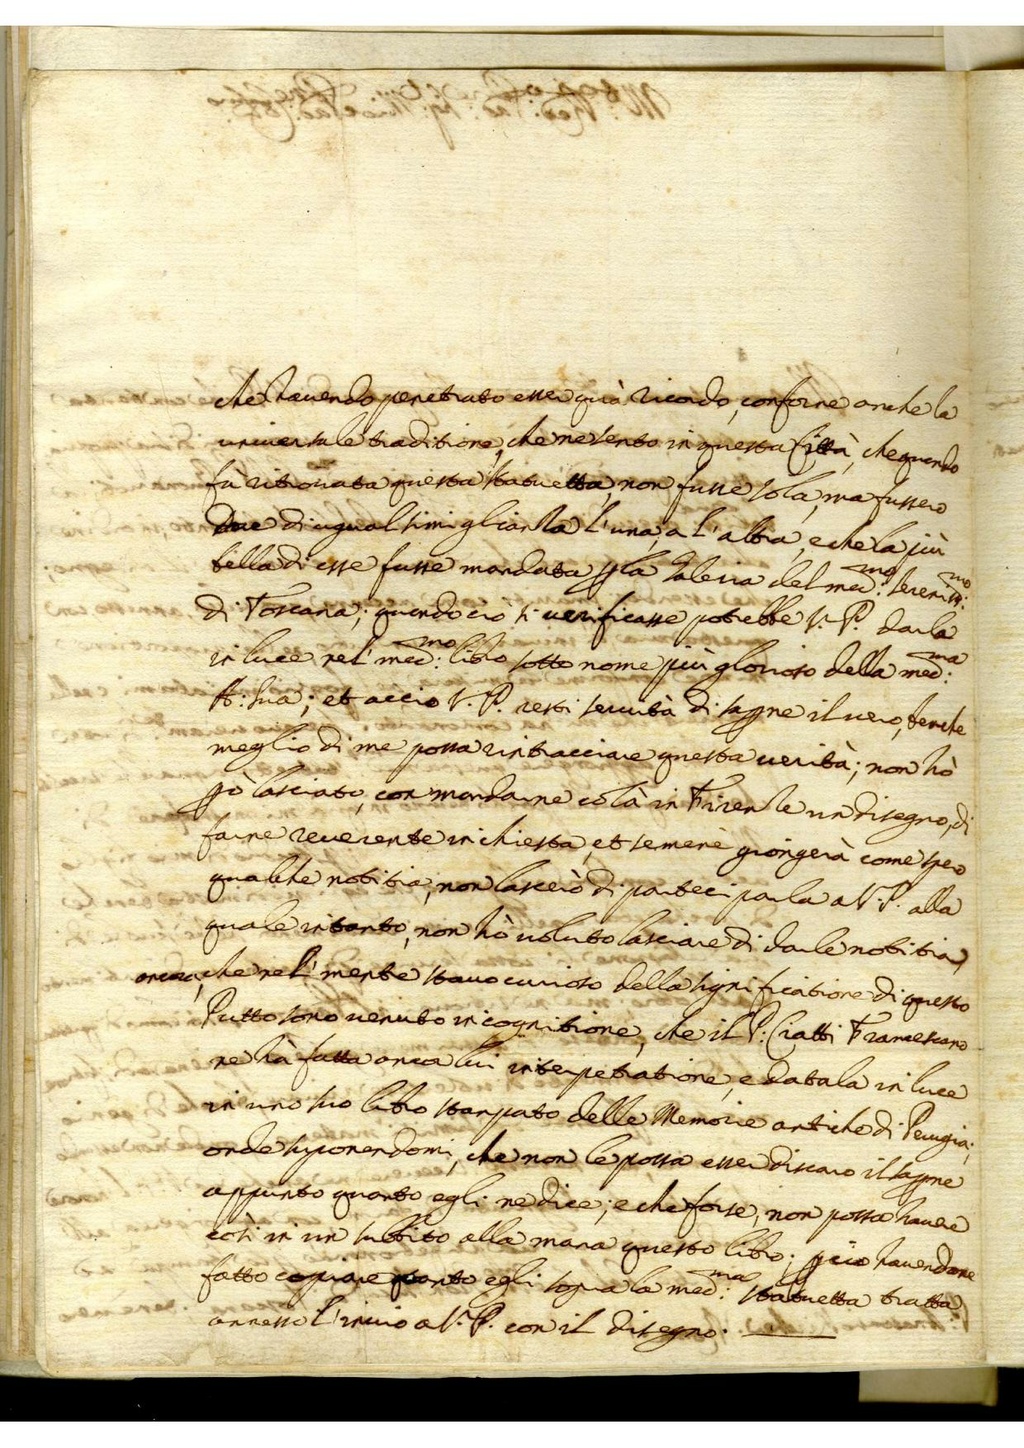 che havendo penetrato esser quà ricordo, conforme anche la
universale traditione, che ne sento in questa Città, che quando
fù ritrovata questa statuetta, non fusse sola, ma fussero
due di ugual simiglianza l'una, a l'altra, e che la più
bella di esse fusse mandata p la Galeria del med:mo Sereniss:mo
di Toscana; quando ciò si verificasse potrebbe V. P. darla
in luce nel med:mo libro sotto nome più glorioso della med:ma
A: Sua; et acciò V. P. resti servita di sapne il vero, benche
meglio di me possa rintracciare questa verità; non hò
pò lasciato, con mandarne colà in Firenze un disegno, di
farne reverente inchiesta, et se me nè giongerà come spero
qualche notitia, non lascerò di parteciparla a V. P. alla
quale intanto, non hò voluto lasciare di darle notitia,
ancora, che nel mentre stavo curioso della significatione di questo
Putto sono venuto in cognitione, che il P: Ciatti Francescano
ne hà fatta anca lui interpetratione, e datala in luce
in uno suo libro stampato delle Memorie antiche di Perugia;
onde suponendomi, che non le possa esser discaro il sapne
appunto quanto egli ne dice; e che forse, non possa havere
così in un subbito alla mana questo libro; pciò havendone
fatto copiare quanto egli sopra la med:ma statuetta tratta
annesso l'invio a V. P. con il disegno.